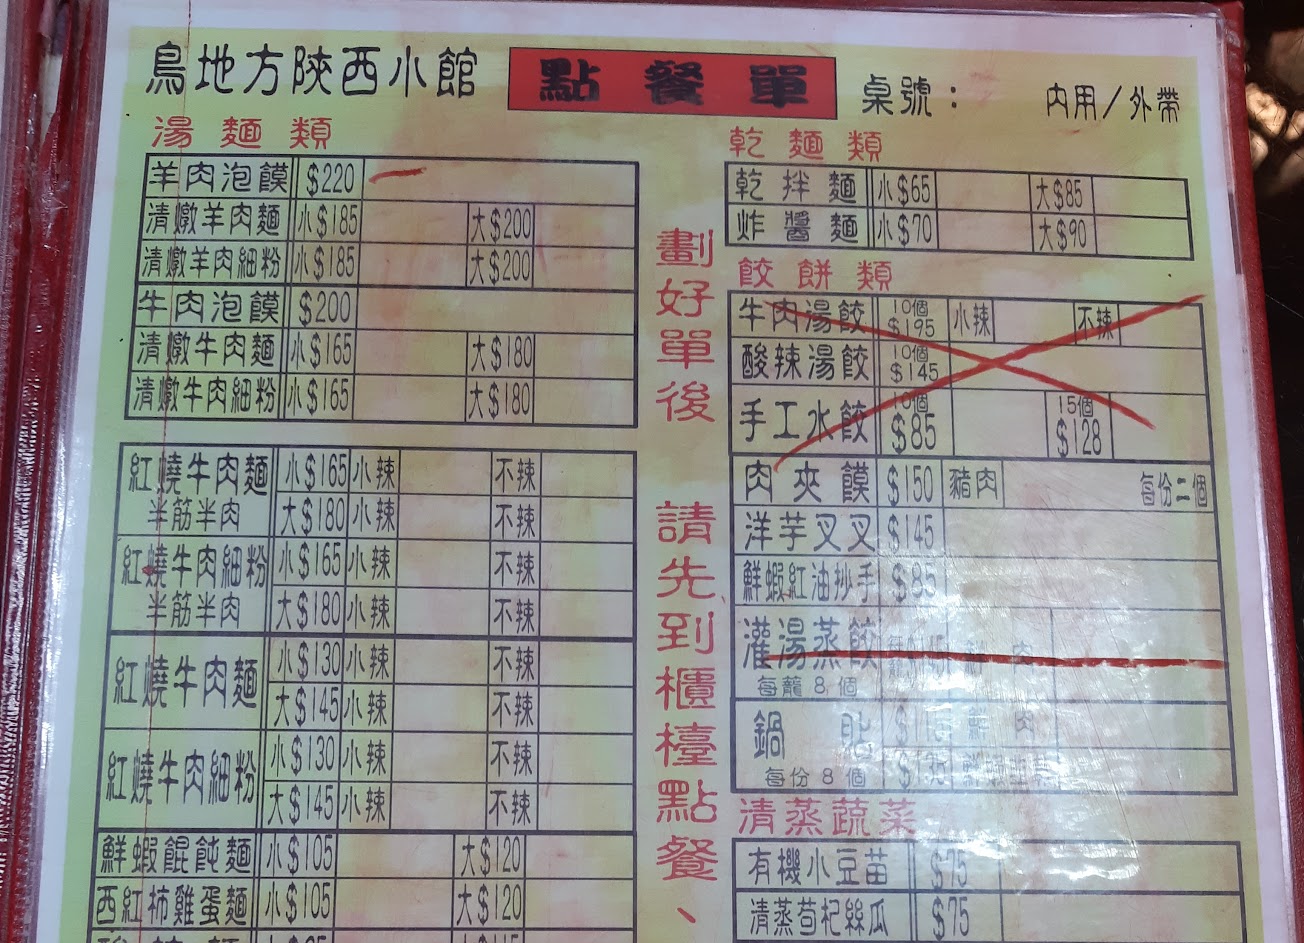 鳥地方陝西小館 點餐單 桌號： 內用／外帶
湯麵類
羊肉泡饃 $220
清燉羊肉麵 小$185 大$200
清燉羊肉細粉 小$185 大$200
牛肉泡饃 $200
清燉牛肉麵 小$165 大$180
清燉牛肉細粉 小$165 大$180
紅燒牛肉麵 小$165 小辣 不辣
半筋半肉 大$180 小辣 不辣
紅燒牛肉細粉 小$165 小辣 不辣
半筋半肉 大$180 小辣 不辣
紅燒牛肉麵 小$130 小辣 不辣
大$145 小辣 不辣
紅燒牛肉細粉 小$130 小辣 不辣
大$145 小辣 不辣
鮮蝦餛飩麵 小$105 大$120
西紅柿雞蛋麵 小$105 大$120
劃好單後 請先到櫃檯點餐、
乾麵類
乾拌麵 小$65 大$85
炸醬麵 小$70 大$90
餃餅類
牛肉湯餃 10個 $195 小辣 不辣
酸辣湯餃 10個 $145
手工水餃 10個 $85 15個 $128
肉夾饃 $150 豬肉 每份二個
洋芋叉叉 $145
鮮蝦紅油抄手 $85
灌湯蒸餃 肉
每籠8個
鍋貼 $115 鮮肉
每份8個
清蒸蔬菜
有機小豆苗 $75
清蒸茍杞絲瓜 $75